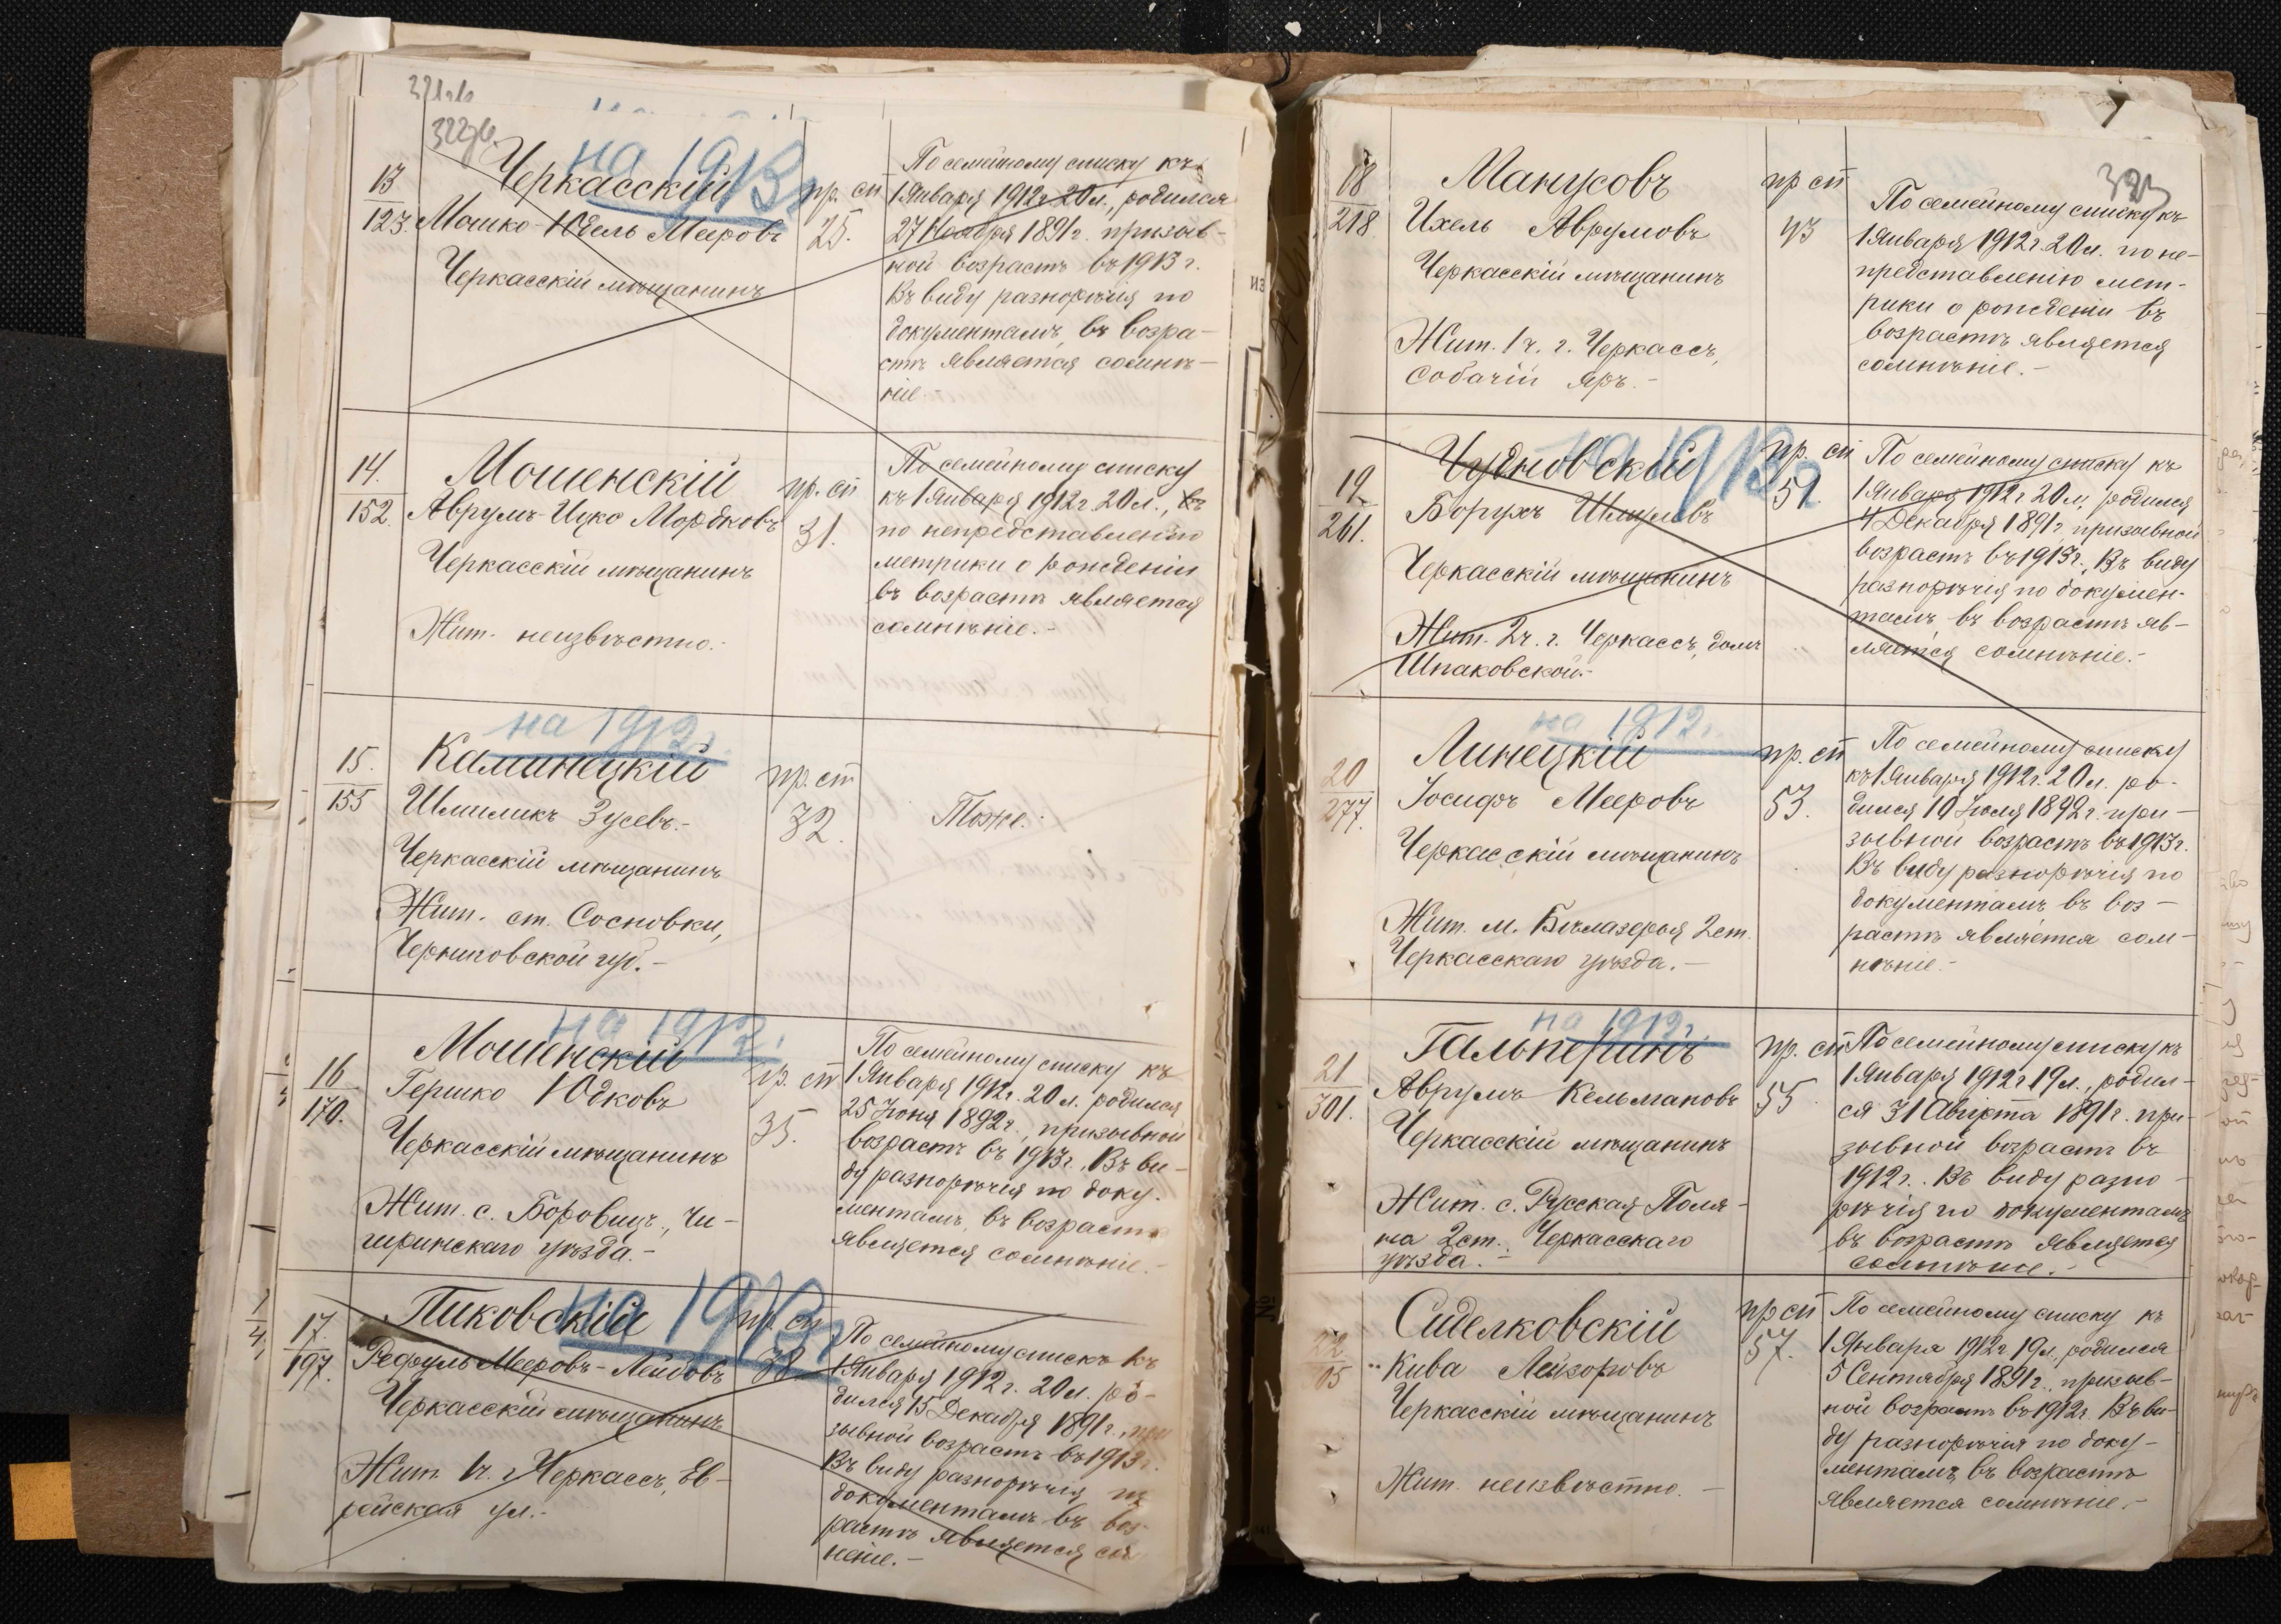 322об.
на 1913 г.
13
123.
Черкасскій
Мошко-Юдель Мееровъ
Черкасскій мѣщанинъ
пр. сп
25.
По семейному списку къ
1 Января 1912 г. 20 л., родился
27 Ноября 1891 г. призыв-
ной возрастъ въ 1913 г.
Въ виду разнорѣчія по
документамъ, въ возра-
стѣ является сомнѣ-
ніе.-
14.
152.
Мошенскій
Аврумъ-Ицко Мордковъ
Черкасскій мѣщанинъ
Жит. неизвѣстно.-
пр. сп
31.
По семейному списку
къ 1 Января 1912 г. 20 л.,
по непредставленію
метрики о рожденіи
въ возрастѣ является
сомнѣніе.-
на 1912 г.
15.
155
Каминецкій
Шлиликъ Зусевъ.-
Черкасскій мѣщанинъ
Жит. ст. Сосновки,
Черниговской губ.-
пр. сп
32.
Тоже.-
на 1912 г.
16
170.
Мошенскій
Гершко Юдковъ
Черкасскій мѣщанинъ
Жит. с. Боровицъ, Чи-
гиринскаго уѣзда.-
пр. сп
35.
По семейному списку къ
1 Января 1912 г. 20 л. родился
25 Іюня 1892 г., призывной
возрастъ въ 1913 г. Въ ви-
ду разнорѣчія по доку-
ментамъ, въ возрастѣ
является сомнѣніе.-
на 1913 г.
17.
197.
Пиковскій
Рефуль Мееровъ-Лейбовъ
Черкасскій мѣщанинъ
Жит. 1 ч. г. Черкассъ, Ев-
рейская ул.-
пр. сп
38
По семейному списку къ
1 Января 1912 г. 20 л. ро-
дился 15 Декабря 1891 г., при
зывной возрастъ въ 1913 г.
Въ виду разнорѣчія по
документамъ въ воз-
растѣ является сом
нѣніе.-
323
18
218.
Манусовъ
Ихель Аврумовъ
Черкасскій мѣщанинъ
Жит. 1 ч. г. Черкассъ,
Собачій яръ.-
пр сп
43
По семейному списку къ
1 Января 1912 г. 20 л. по не-
представленію мет-
рики о рожденіи въ
возрастѣ является
сомнѣніе.-
на 1913 г.
19
261.
Чудновскій
Борухъ Шмулевъ
Черкасскій мѣщанинъ
Жит. 2 ч. г. Черкассъ, домъ
Шпаковской.-
пр. сп
51.
По семейному списку къ
1 Января 1912 г. 20 л., родился
4 Декабря 1891 г., призывной
возрастъ въ 1913 г., Въ виду
разнорѣчія по докумен-
тамъ, въ возрастѣ яв-
ляется сомнѣніе.-
на 1912 г.
20
277.
Линецкій
Іосифъ Мееровъ
Черкасскій мѣщанинъ
Жит. м. Бѣлазерья 2 ст.
Черкасскаго уѣзда.-
пр. сп
53.
По семейному списку
къ 1 Января 1912 г. 20 л. ро-
дился 10 Іюля 1892 г. при-
зывной возрастъ въ 1913 г.
Въ виду разнорѣчія по
документамъ въ воз-
растѣ является сом-
нѣніе.-
на 1912 г.
21
301.
Гальперинъ
Аврумъ Кельмановъ
Черкасскій мѣщанинъ
Жит. с. Русская Поля-
на 2 ст. Черкасскаго
уѣзда.-
пр. сп
55
По семейному списку къ
1 Января 1912 г. 19 л., родил-
ся 31 Августа 1891 г. при-
зывной возрастъ въ
1912 г. Въ виду разно-
рѣчія по документамъ
въ возрастѣ является
сомнѣніе.-
22.
05
Сиделковскій
Кива Лейзоровъ
Черкасскій мѣщанинъ
Жит. неизвѣстно.-
пр сп
57.
По семейному списку къ
1 Января 1912 г. 19 л., родился
5 Сентября 1891 г., призыв-
ной возрастъ въ 1912 г. Въ ви-
ду разнорѣчія по доку-
ментамъ, въ возрастѣ
является сомнѣніе.-